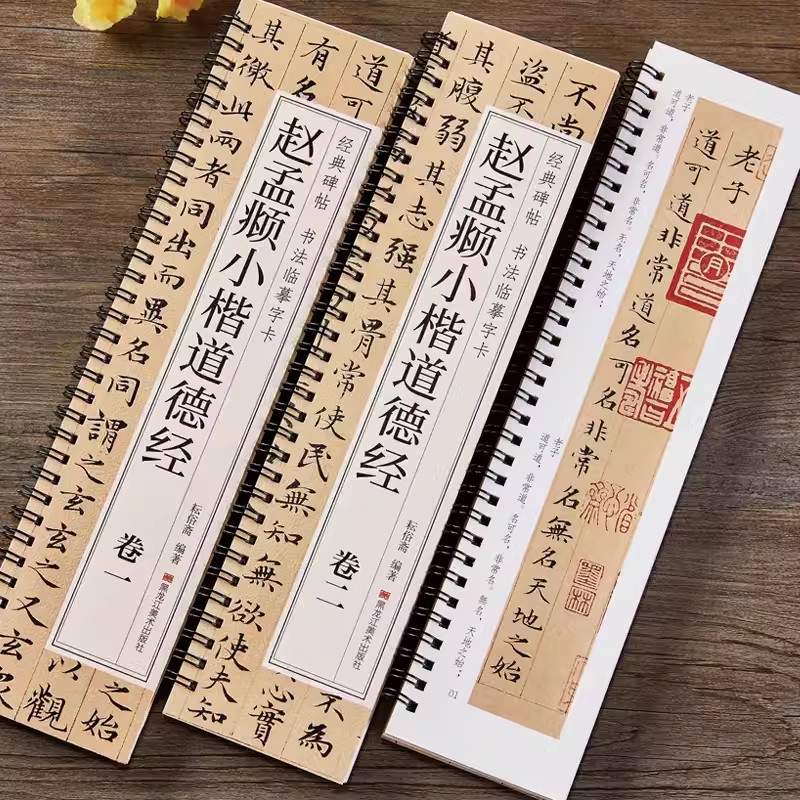 道可
有名
其徼此兩者同出而異名同謂之玄玄之又玄衆
之始
以觀
经典碑帖 书法临摹字卡
赵孟頫小楷道德经
卷一
耘俗斋 编著
黑龙江美术出版社
不尚
盜不
其腹弱其志强其骨常使民無知無欲使夫知
不為
心實
经典碑帖 书法临摹字卡
赵孟頫小楷道德经
卷二
耘俗斋 编著
黑龙江美术出版社
老子
道可道非常道名可名非常名無名天地之始
墨林
老子
道可道，非常道。名可名，非常名。无名，天地之始；
老子
道可道，非常道。名可名，非常名。無名，天地之始；
01